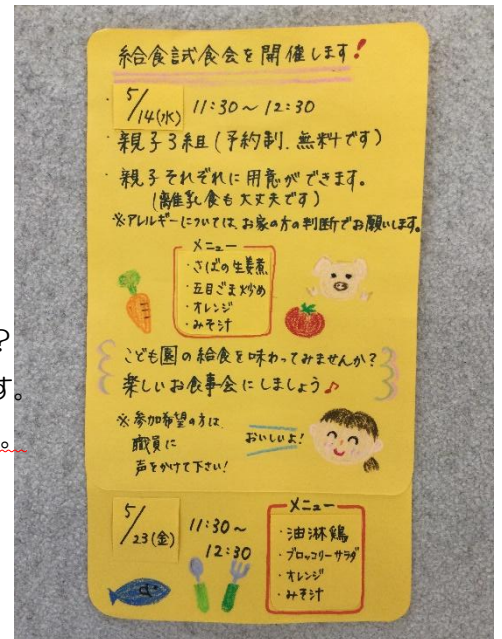 給食試食会を開催します!
5/14(水) 11:30〜12:30
・親子3組(予約制、無料です)
・親子それぞれに用意ができます。
(離乳食も大丈夫です)
※アレルギーについては、お家の方の判断でお願いします。
メニュー
・さばの生姜煮
・五目ごま炒め
・オレンジ
・みそ汁
?
こども園の給食を味わってみませんか?
す。
楽しいお食事会にしましょう♪
。
※参加希望の方は、
職員に
声をかけて下さい!
おいしいよ!
5/23(金) 11:30〜
12:30
メニュー
・油淋鶏
・ブロッコリーサラダ
・オレンジ
・みそ汁